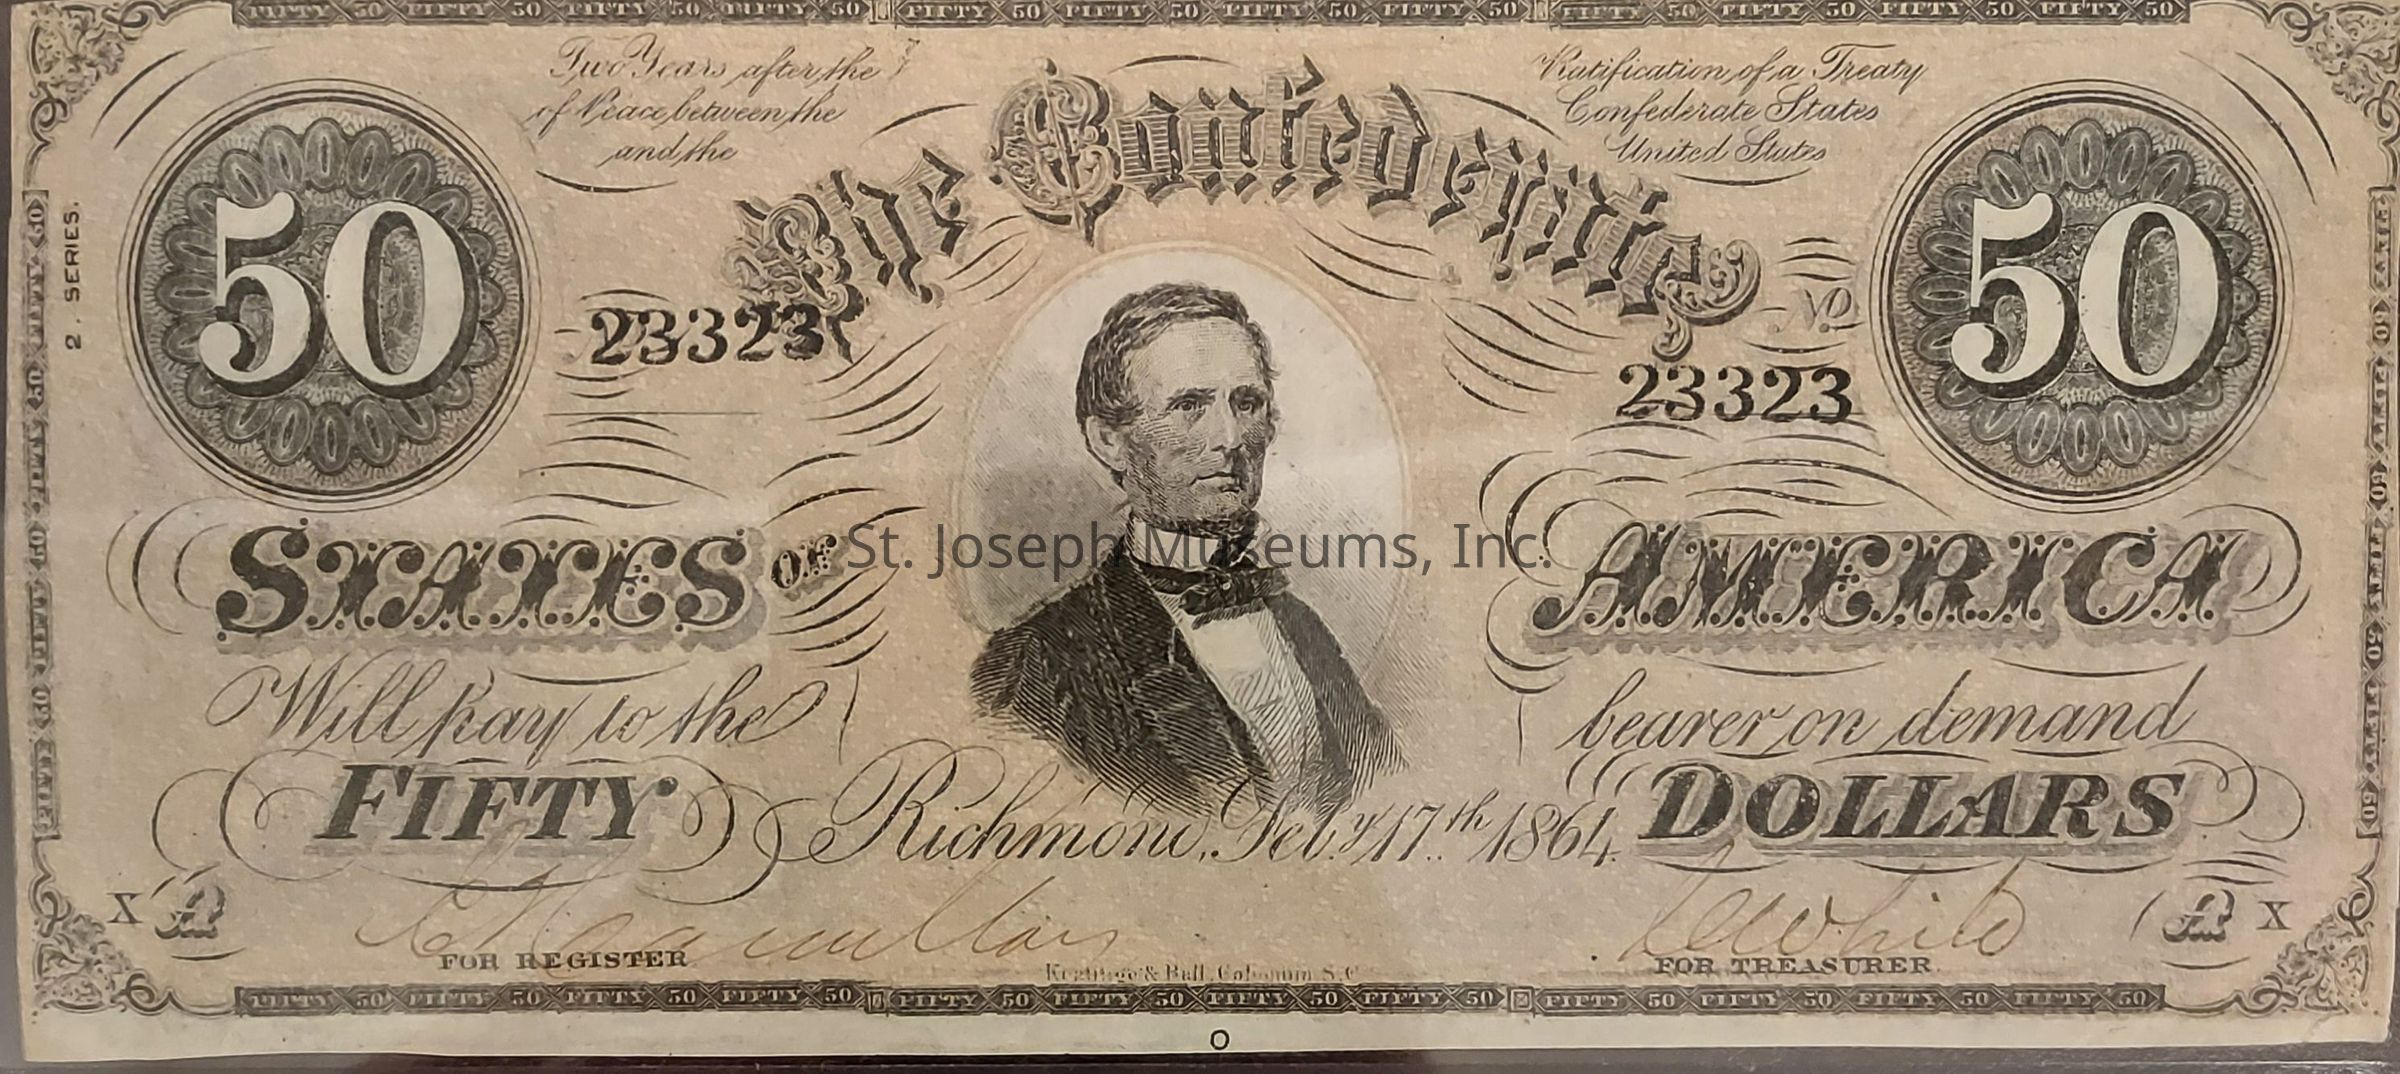 FIFTY 50 FIFTY 50 FIFTY 50 FIFTY 50 FIFTY 50 FIFTY 50 FIFTY 50 FIFTY 50 FIFTY 50 FIFTY 50 FIFTY 50 FIFTY 50
Two Years after the Ratification of a Treaty
of Peace between the Confederate States
and the United States
The Confederate
50
50
2. SERIES.
23323
No
23323
STATES OF AMERICA
St. Joseph Museums, Inc.
Will pay to the bearer on demand
FIFTY DOLLARS
Richmond, Feb.y 17th 1864.
X A
A X
White
FOR REGISTER
FOR TREASURER
Keatinge & Ball, Columbia S.C.
FIFTY 50 FIFTY 50 FIFTY 50 FIFTY 50 FIFTY 50 FIFTY 50 FIFTY 50 FIFTY 50 FIFTY 50 FIFTY 50 FIFTY 50 FIFTY 50
O